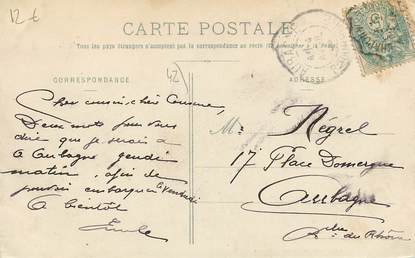 12 €
CARTE POSTALE
Tous les pays étrangers n'acceptent pas la correspondance au recto (Se renseigner à la Poste)
CORRESPONDANCE
ADRESSE
42
Cher cousin, chère Cousine,
Deux mots pour vous
dire que je serai à
à Aubagne jeudi
matin, afin de
pouvoir embarquer le vendredi
A bientôt
Emile
Mr Négrel
17 Place Domergue
Aubagne
du Rhône